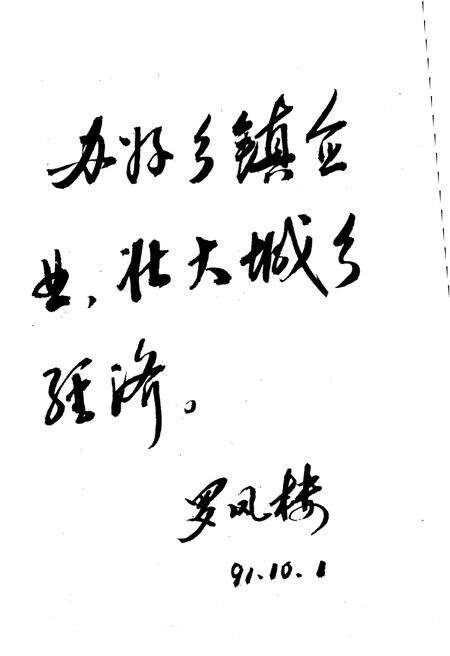 办好乡镇企
业，壮大城乡
经济。
罗凤楼
91.10.1